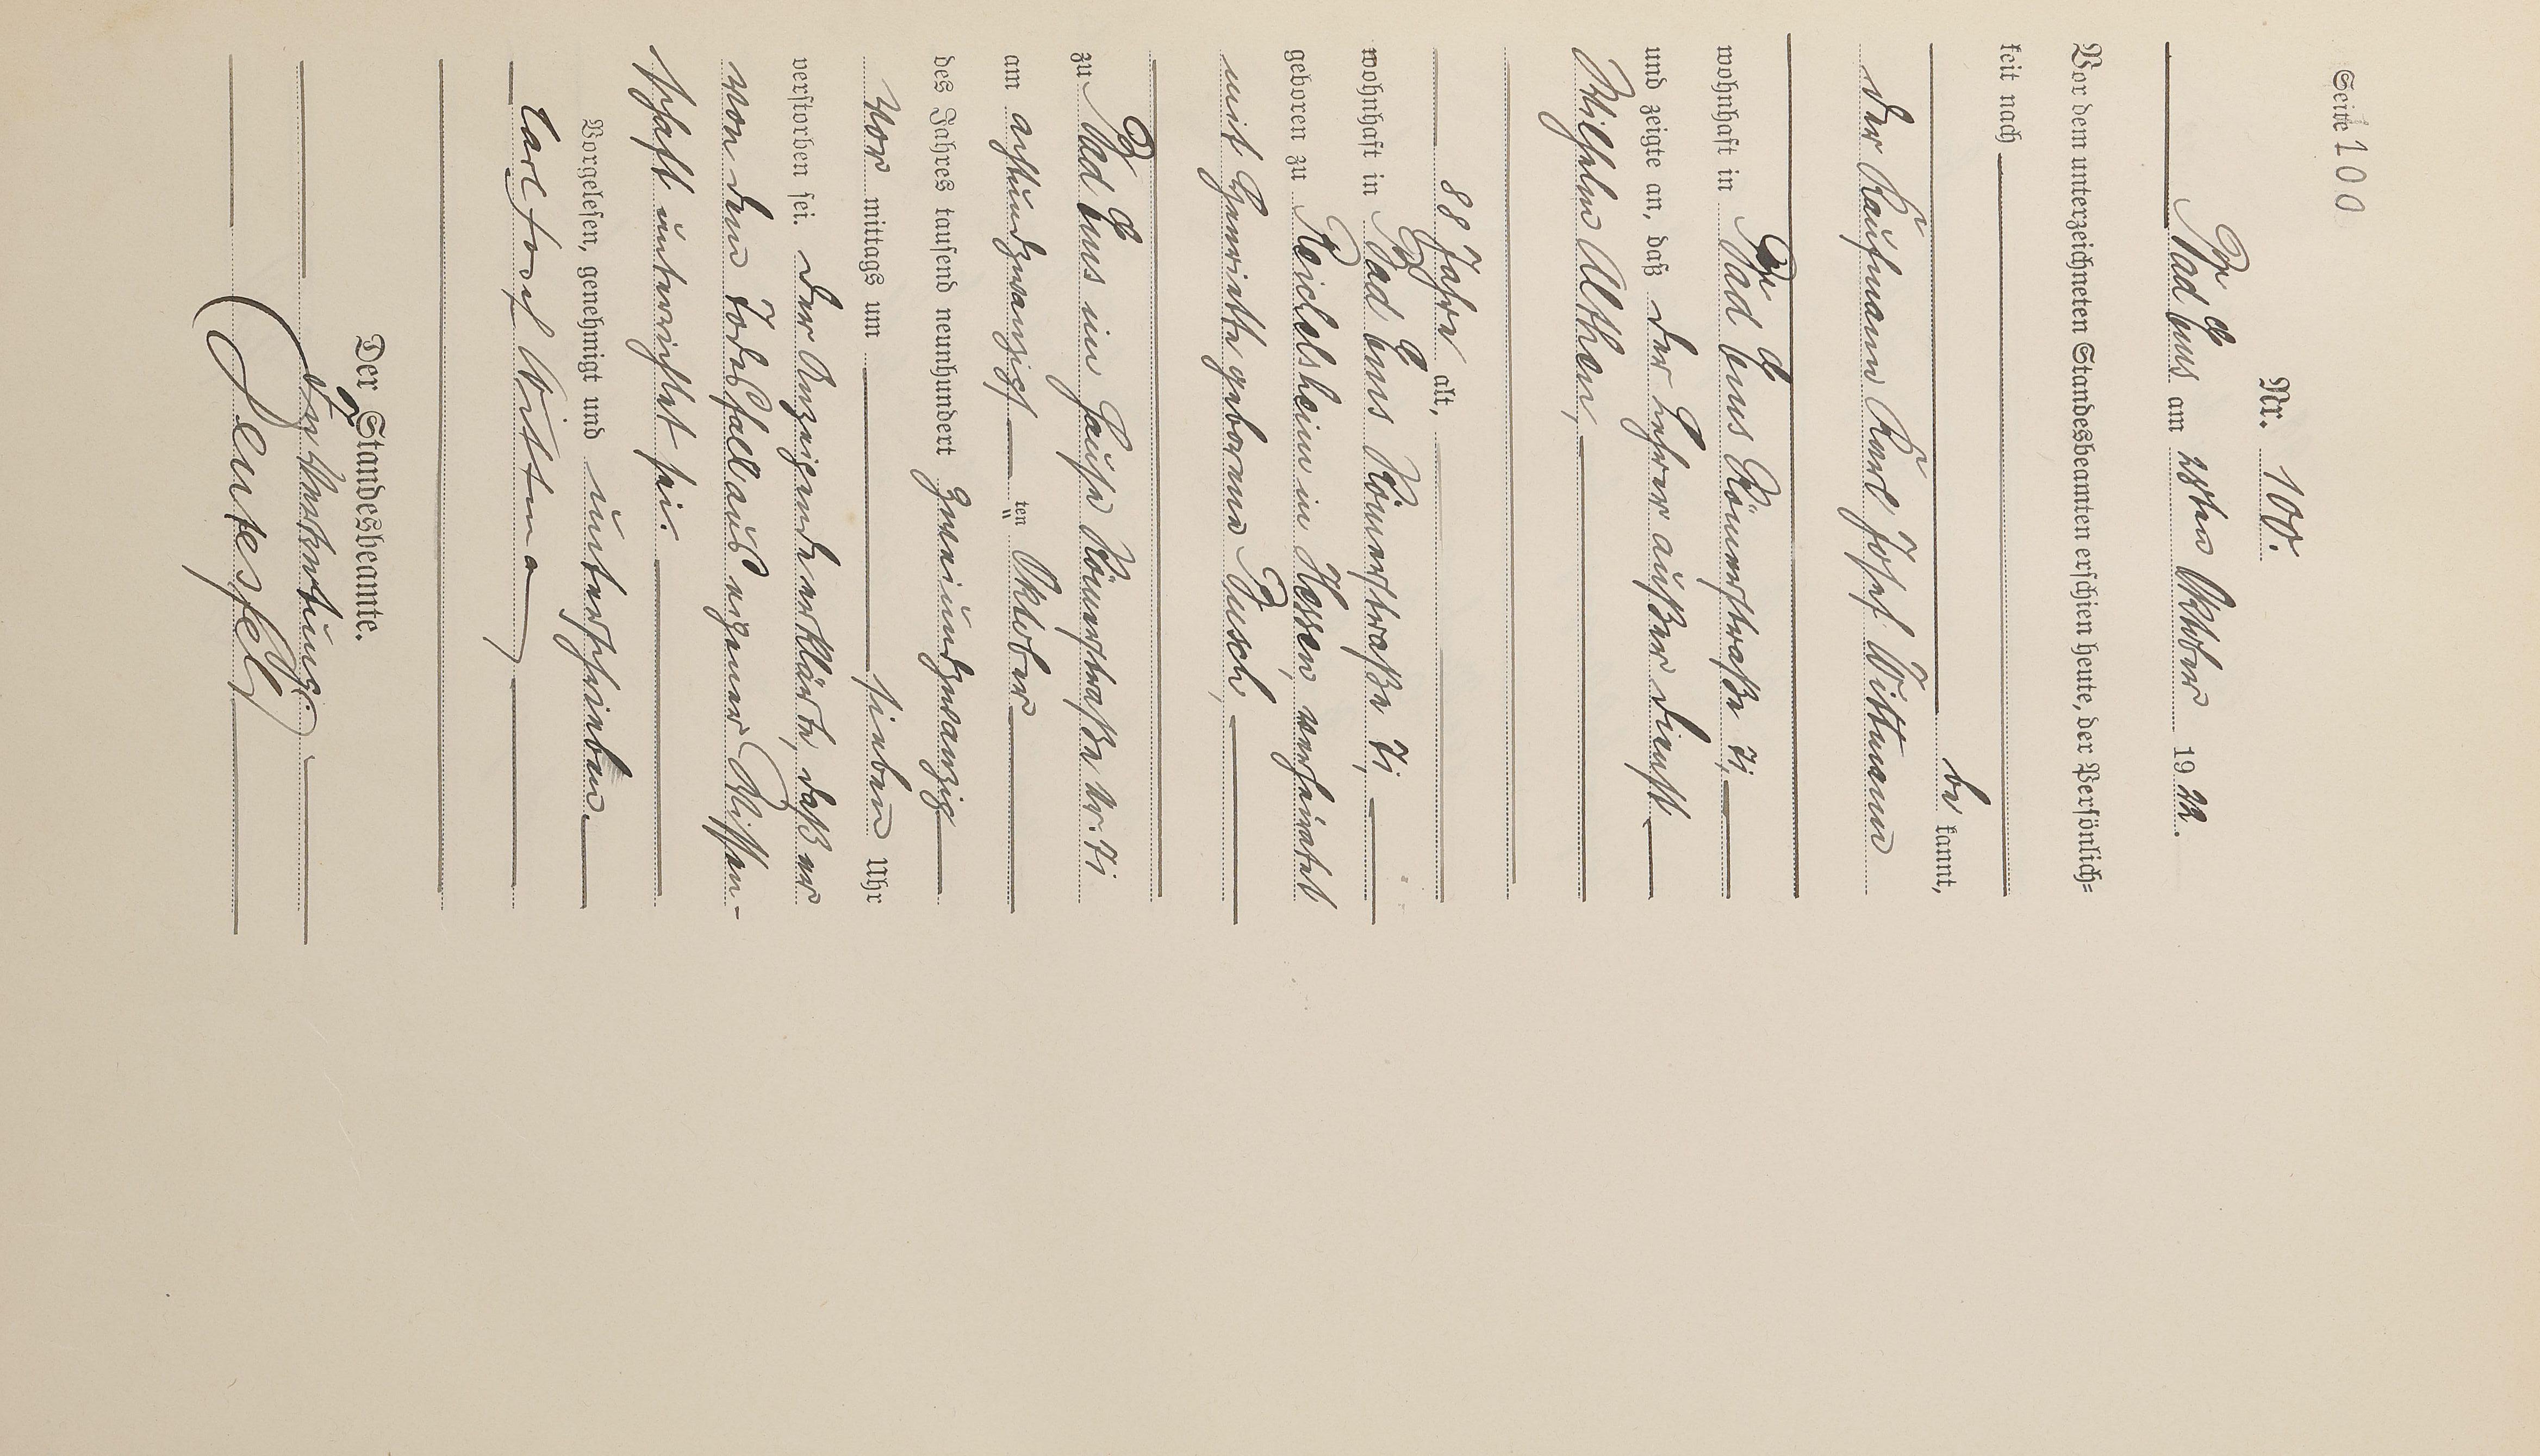 Seite 100
Nr. 100.
Bad Ems am 28ten Oktober 1922.
Vor dem unterzeichneten Standesbeamten erschien heute, der Persönlich-
keit nach
be kannt,
der Kaufmann Karl Josef Wittmann
wohnhaft in Bad Ems Römerstraße 71,
und zeigte an, daß der Lehrer außer Dienst
Wilhelm Althen,
88 Jahre alt,
wohnhaft in Bad Ems Römerstraße 71,
geboren zu Reichelsheim in Hessen, verheiratet
mit Henriette geborene Busch,
zu Bad Ems im Hause Römerstraße Nr. 71
am achtundzwanzigs ten Oktober
des Jahres tausend neunhundert zweiundzwanzig
Vor mittags um sieben Uhr
verstorben sei. Der Anzeigende erklärte, daß er
von dem Todesfall aus eigener Wissen-
schaft unterrichtet sei.
Vorgelesen, genehmigt und unterschrieben.
Carl Josef Wittmann
Der Standesbeamte.
In Vertretung: